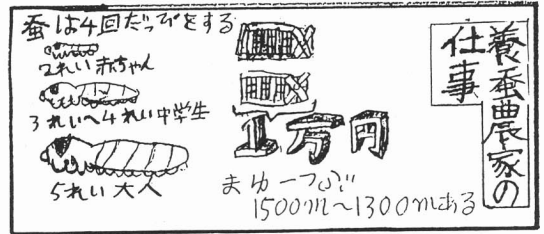 養蚕農家の
仕事
蚕は4回だっぴをする
2れい 赤ちゃん
3れい〜4れい中学生
5れい 大人
1万円
まゆ一つぶ
1500m〜1300mある